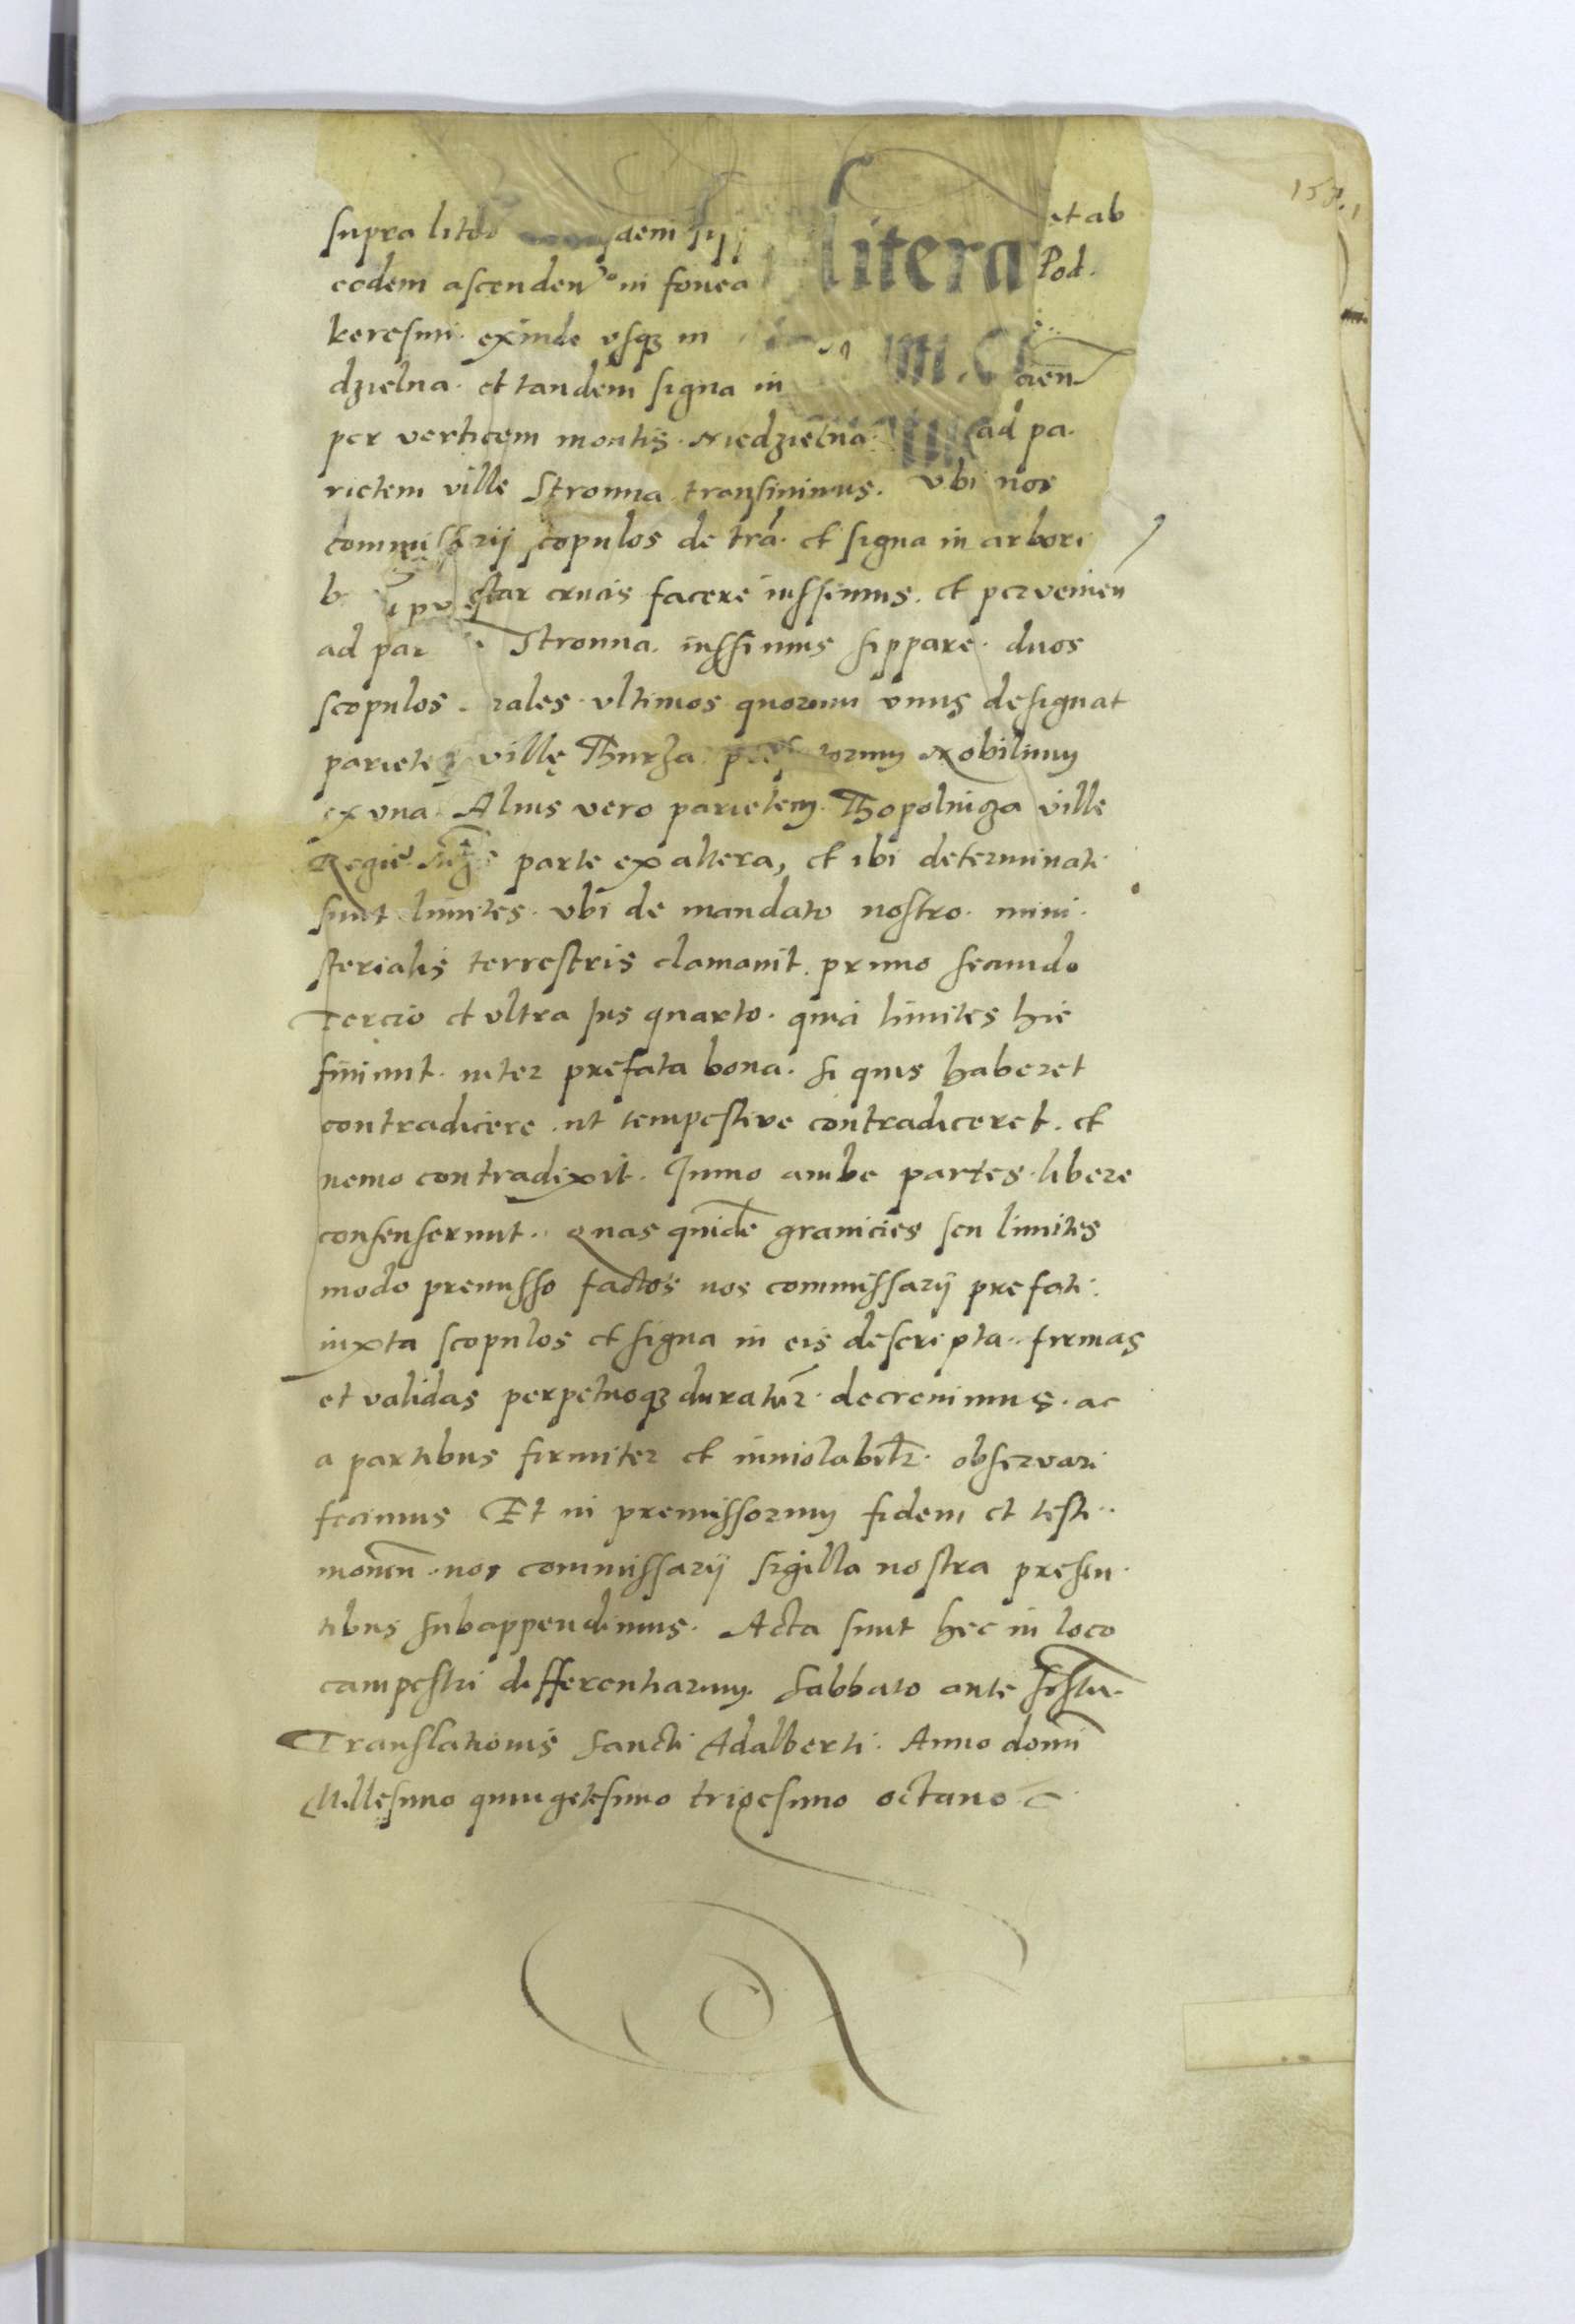 158.
supra et ab
eodem ascenden in fovea litera Pod.
keresmi. exinde usq3 in
dzielna. et tandem signa in cien
per verticem montis. Niedzielna. ad pa.
rietem ville Stronna transivimus. Vbi nos
commissarij scopulos de tra. et signa in arbori
b star crucis facere iussimus. et pervenien
ad par Stronna. iussimus sippare. duos
scopulos rales. ultimos quorum unus designat
pariete ville Thurza Nobilium
ex una. Alius vero parietem. Thopolniza ville
Regie parte ex altera, et ibi determinati
sunt limites. ubi de mandato nostro. mini.
sterialis terrestris clamavit. primo secundo
Tercio et ultra ius quarto. quia limites hic
finiunt. inter prefata bona. si quis haberet
contradicere. ut tempestive contradiceret. et
nemo contradixit. Immo ambe partes. libere
consenserunt. Quas quide granicies seu limites
modo premisso factos nos commissarij prefati.
iuxta scopulos et signa in eis descripta. firmas
et validas perpetuoq3 duratur. decrevimus. ac
a partibus firmiter et inviolabilr. observari
fecimus Et in premissorum fidem et testi.
monium. nos commissarij sigilla nostra presen.
tibus subappendimus. Acta sunt hec in loco
campestri differentiarum. Sabbato ante festum.
Translationis sancti Adalberti. Anno domini
Millesimo quingetesimo tricesimo octavo